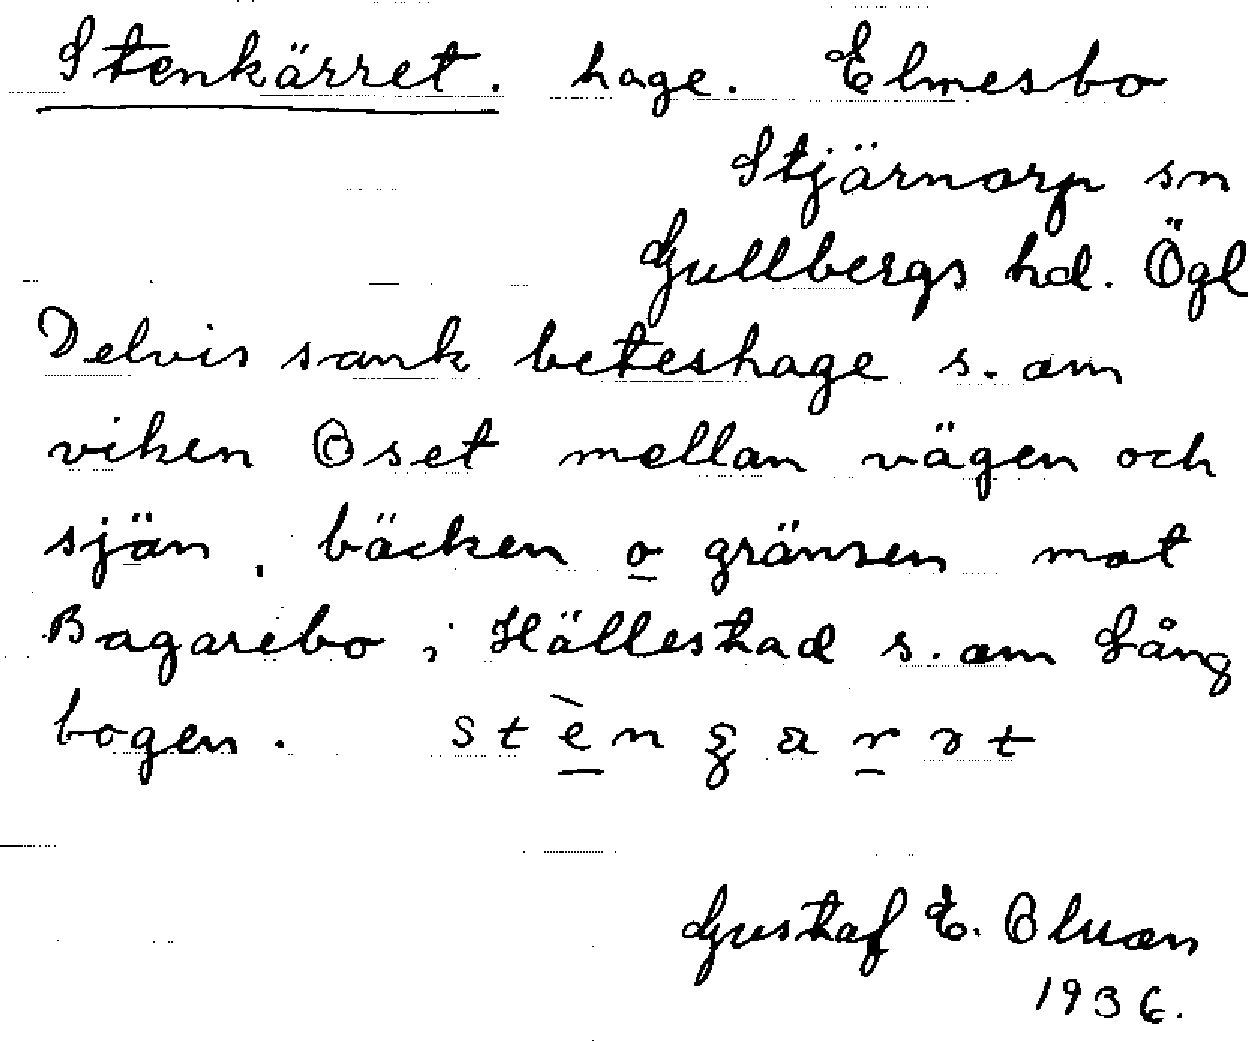 Stenkärret. hage. Elmesbo
Stjärnorp sn
Gullbergs hd. Ögl
Delvis sank beteshage s. om
viken Oset mellan vägen och
sjön, bäcken o gränsen mot
Bagarebo i Hällestad s. om Lång
bogen.
Gustaf E.
1936.